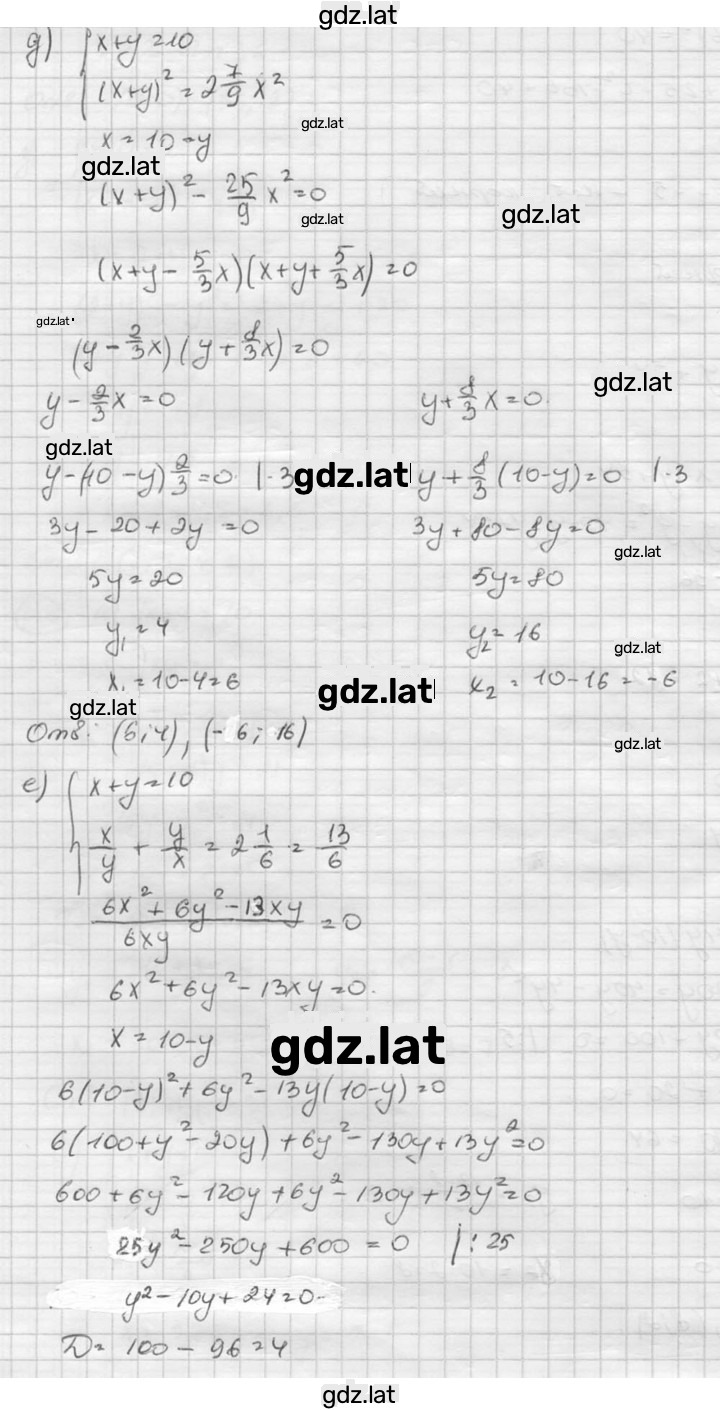 gdz.lat
д) { x+y=10
(x+y)² = 2 7/9 x²
gdz.lat
x = 10-y
gdz.lat
(x+y)² - 25/9 x² = 0
gdz.lat
gdz.lat
(x+y - 5/3 x)(x+y+ 5/3 x) = 0
gdz.lat
(y - 2/3 x)(y + 8/3 x) = 0
gdz.lat
y - 2/3 x = 0 y + 8/3 x = 0.
gdz.lat
y-(10-y) 2/3 = 0 |·3 gdz.lat y + 8/3 (10-y) = 0 |·3
3y - 20 + 2y = 0 3y + 80 - 8y = 0
gdz.lat
5y = 20 5y = 80
y₁ = 4 y₂ = 16
gdz.lat
x₁ = 10-4=6 gdz.lat x₂ = 10-16 = -6
gdz.lat
Отв: (6;4), (-6; 16)
gdz.lat
е) { x+y=10
x/y + y/x = 2 1/6 = 13/6
(6x² + 6y² - 13xy)/(6xy) = 0
6x²+6y²-13xy=0.
x = 10-y
gdz.lat
6(10-y)²+6y²-13y(10-y)=0
6(100+y²-20y)+6y²-130y+13y²=0
600+6y²-120y+6y²-130y+13y²=0
25y²-250y+600 = 0 |:25
y²-10y+24=0
D= 100-96=4
gdz.lat